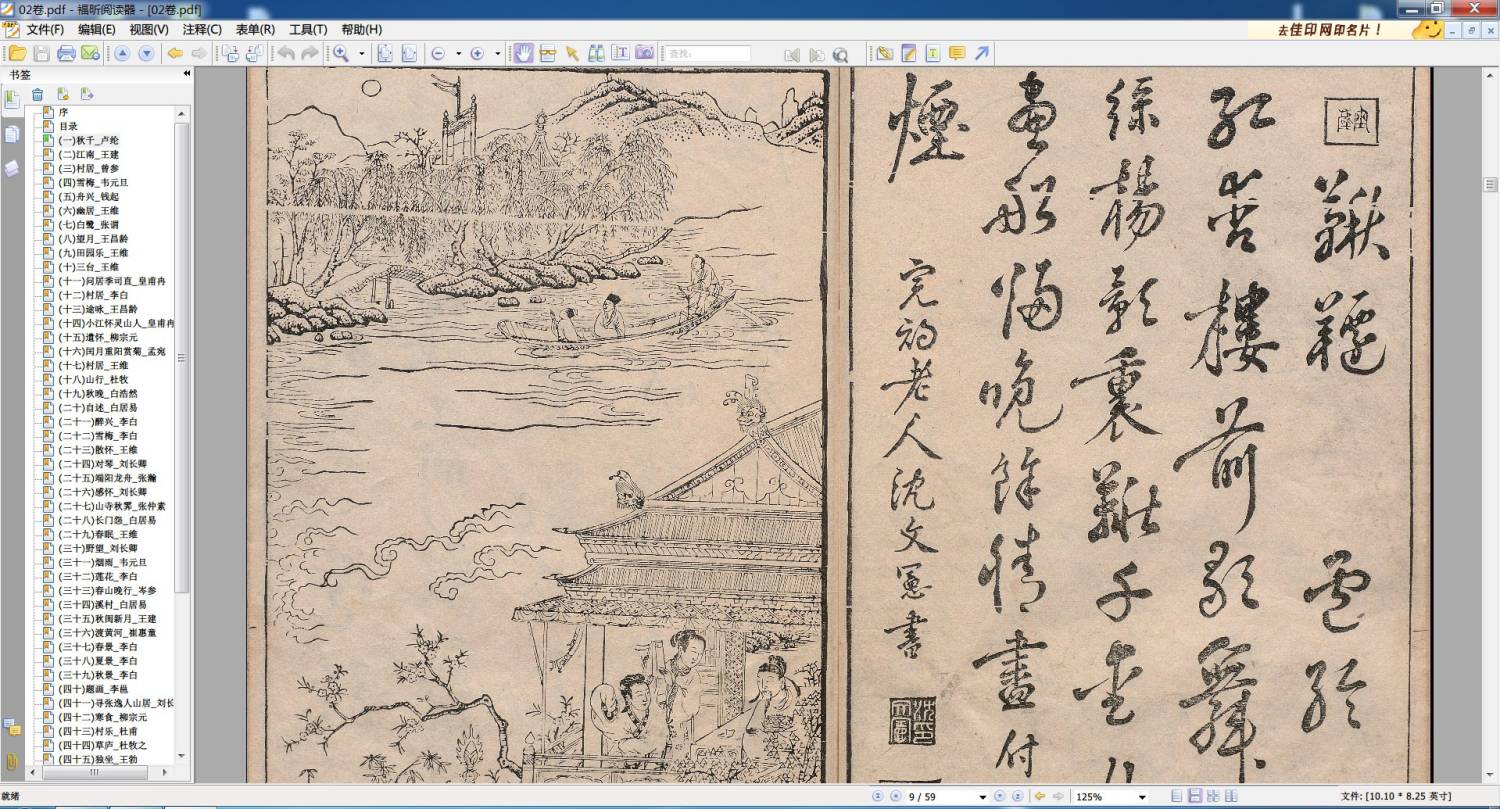 02卷.pdf - 福昕阅读器 - [02卷.pdf]
文件(F) 编辑(E) 视图(V) 注释(C) 表单(R) 工具(T) 帮助(H)
去佳印网印名片！
查找:
书签
序
目录
(一)秋千_卢纶
(二)江南_王建
(三)村居_曾参
(四)雪梅_韦元旦
(五)舟兴_钱起
(六)幽居_王维
(七)白鹭_张谓
(八)望月_王昌龄
(九)田园乐_王维
(十)三台_王维
(十一)问居季司直_皇甫冉
(十二)村居_李白
(十三)途咏_王昌龄
(十四)小江怀灵山人_皇甫冉
(十五)遣怀_柳宗元
(十六)闰月重阳赏菊_孟宛
(十七)村居_王维
(十八)山行_杜牧
(十九)秋晚_白浩然
(二十)自述_白居易
(二十一)醉兴_李白
(二十二)雪梅_李白
(二十三)散怀_王维
(二十四)对琴_刘长卿
(二十五)端阳龙舟_张瀚
(二十六)感怀_刘长卿
(二十七)山寺秋霁_张仲素
(二十八)长门怨_白居易
(二十九)春眠_王维
(三十)野望_刘长卿
(三十一)烟雨_韦元旦
(三十二)莲花_李白
(三十三)春山晚行_岑参
(三十四)溪村_白居易
(三十五)秋闺新月_王建
(三十六)渡黄河_崔惠童
(三十七)春景_李白
(三十八)夏景_李白
(三十九)秋景_李白
(四十)题画_李邕
(四十一)寻张逸人山居_刘长
(四十二)寒食_柳宗元
(四十三)村乐_杜甫
(四十四)草庐_杜牧之
(四十五)独坐_王勃
鞦韆 盧綸
紅杏樓前歌舞
綠楊影裏鞦千
畫船歸晚餘情盡付
煙
完初老人沈文憲書
就绪
9 / 59
125%
文件: [10.10 * 8.25 英寸]